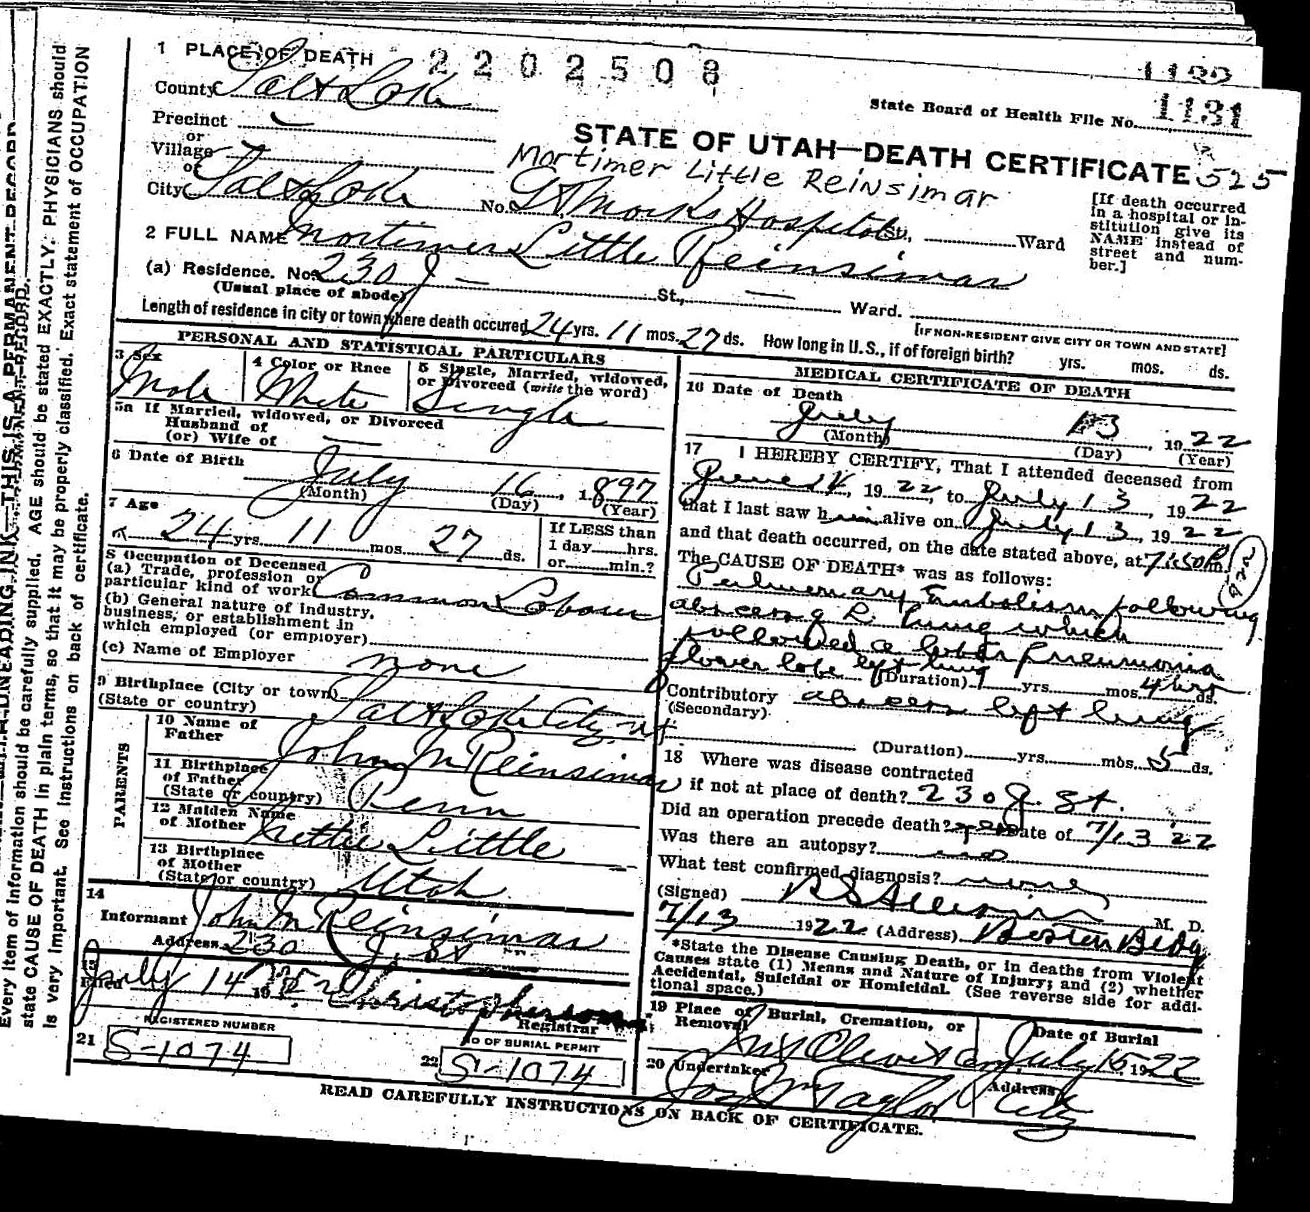 1 PLACE OF DEATH 2202508
1131
County Salt Lake
State Board of Health File No. 1131
Precinct
or
Village
or
City Salt Lake
STATE OF UTAH—DEATH CERTIFICATE
525
Mortimer Little Reinsimar
No. St Marks Hospital St., Ward
[If death occurred in a hospital or institution give its NAME instead of street and number.]
2 FULL NAME Mortimer Little Reinsimar
(a) Residence. No. 230 J — St., — Ward.
(Usual place of abode)
[IF NON-RESIDENT GIVE CITY OR TOWN AND STATE]
Length of residence in city or town where death occured 24 yrs. 11 mos. 27 ds. How long in U.S., if of foreign birth? yrs. mos. ds.
PERSONAL AND STATISTICAL PARTICULARS
3 Sex Male
4 Color or Race White
5 Single, Married, widowed, or Divorced (write the word) Single
5a If Married, widowed, or Divorced
Husband of
(or) Wife of —
6 Date of Birth July 16, 1897
(Month) (Day) (Year)
7 Age 24 yrs. 11 mos. 27 ds.
If LESS than
1 day......hrs.
or......min.?
8 Occupation of Deceased
(a) Trade, profession or
particular kind of work Common Laborer
(b) General nature of industry,
business, or establishment in
which employed (or employer)
(c) Name of Employer none
9 Birthplace (City or town)
(State or country) Salt Lake City, Ut
PARENTS
10 Name of
Father John M Reinsimar
11 Birthplace
of Father
(State or country) Penn
12 Maiden Name
of Mother Nettie Little
13 Birthplace
of Mother
(State or country) Utah
14
Informant John M Reinsimar
Address 230 J. St
15
Filed July 14 19 Christopherson
Registrar
21 REGISTERED NUMBER S-1074
22 NO OF BURIAL PERMIT S-1074
MEDICAL CERTIFICATE OF DEATH
16 Date of Death
July 13, 1922
(Month) (Day) (Year)
17 I HEREBY CERTIFY, That I attended deceased from
June, 1922 to July 13, 1922
that I last saw him alive on July 13, 1922
and that death occurred, on the date stated above, at 7:50 P.m.
The CAUSE OF DEATH* was as follows:
Pulmonary Embolism following
abscess of L. lung which
followed a lobar pneumonia
of lower lobe left lung
(Duration) yrs. mos. 4 hrs ds.
Contributory abscess left lung
(Secondary)
(Duration) yrs. mos. 5 ds.
18 Where was disease contracted
if not at place of death? 230 J. St.
Did an operation precede death? yes Date of 7/13 '22
Was there an autopsy? no
What test confirmed diagnosis? none
(Signed) M. D.
7/13 1922 (Address) Boston Bldg
*State the Disease Causing Death, or in deaths from Violent
Causes state (1) Means and Nature of Injury; and (2) whether
Accidental, Suicidal or Homicidal. (See reverse side for additional space.)
19 Place of Burial, Cremation, or
Removal Mt Olivet Cem
Date of Burial July 15, 1922
20 Undertaker Jos Wm Taylor
Address City
READ CAREFULLY INSTRUCTIONS ON BACK OF CERTIFICATE.
Every item of information should be carefully supplied. AGE should be stated EXACTLY. PHYSICIANS should
state CAUSE OF DEATH in plain terms, so that it may be properly classified. Exact statement of OCCUPATION
is very important. See instructions on back of certificate.